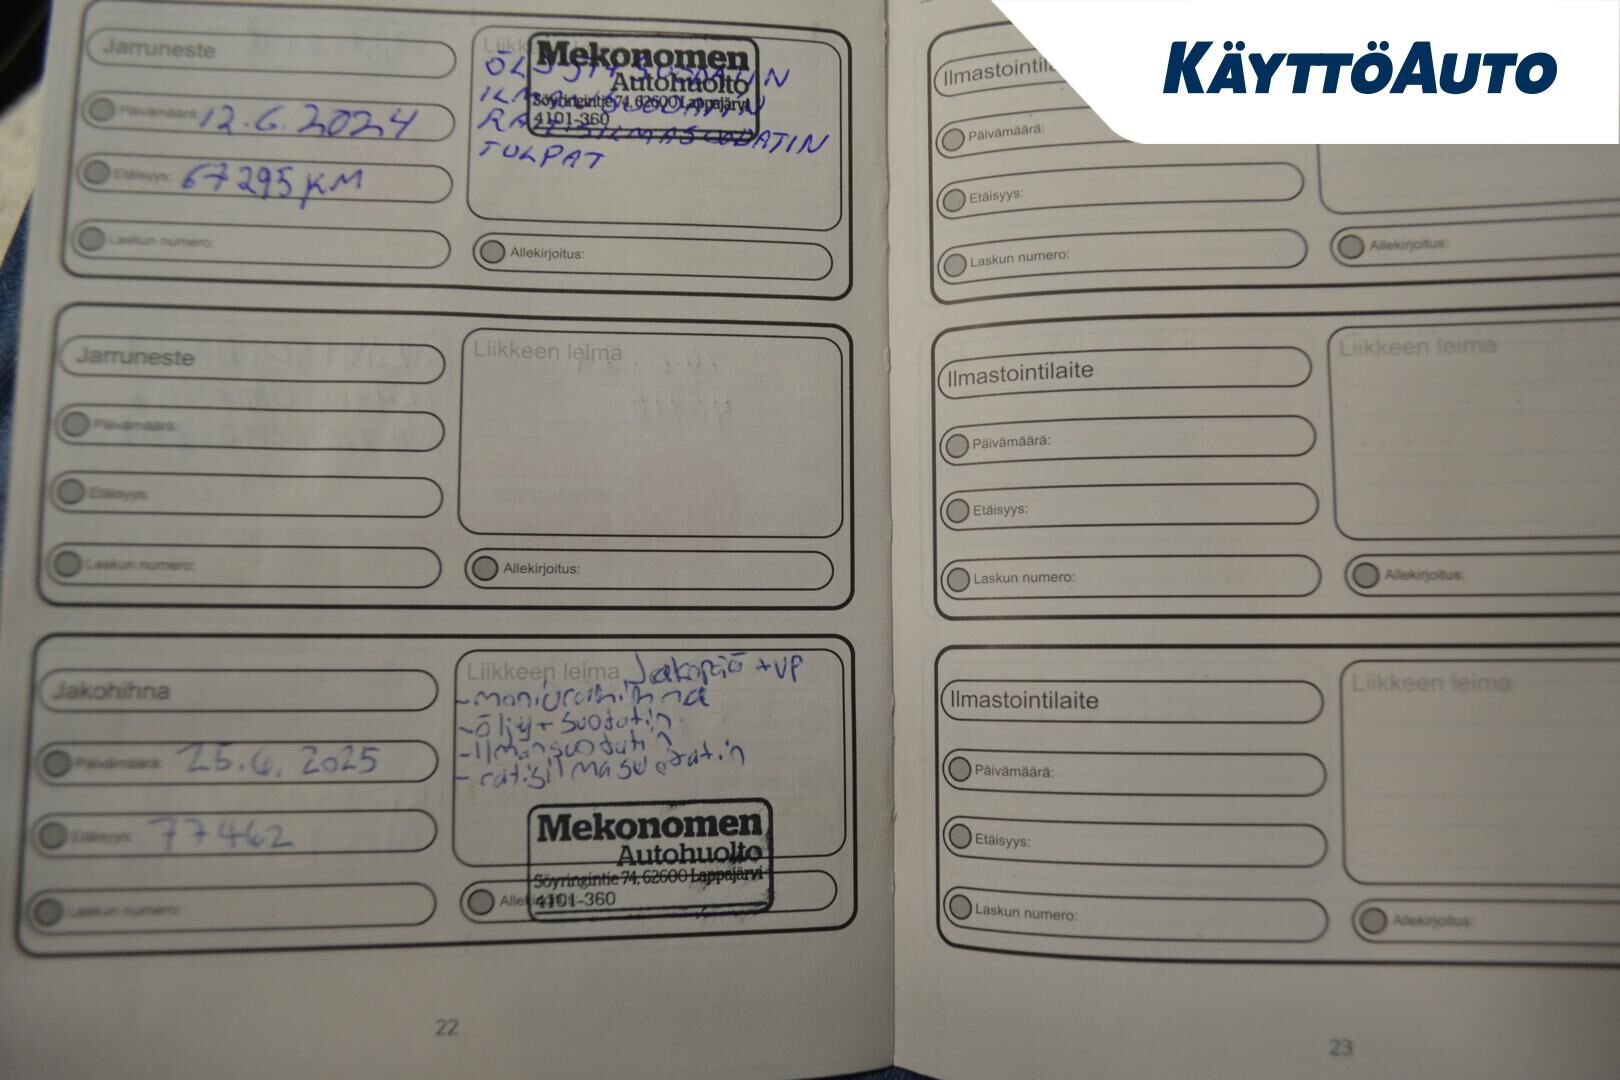 KÄYTTÖAUTO
Jarruneste
Päivämäärä: 12.6.2024
Etäisyys: 67295 KM
Laskun numero:
Mekonomen
Autohuolto
Söyringintie 74, 62600 Lappajärvi
4101-360
TULPAT
Allekirjoitus:
Jarruneste
Päivämäärä:
Etäisyys:
Laskun numero:
Liikkeen leima
Allekirjoitus:
Jakohihna
Päivämäärä: 25.6. 2025
Etäisyys: 77462
Laskun numero:
Liikkeen leima Jakopää + VP
- öljy + suodatin
- Ilmansuodatin
Mekonomen
Autohuolto
Söyringintie 74, 62600 Lappajärvi
4101-360
22
Päivämäärä:
Etäisyys:
Laskun numero:
Allekirjoitus:
Ilmastointilaite
Päivämäärä:
Etäisyys:
Laskun numero:
Liikkeen leima
Allekirjoitus:
Ilmastointilaite
Päivämäärä:
Etäisyys:
Laskun numero:
Liikkeen leima
Allekirjoitus:
23